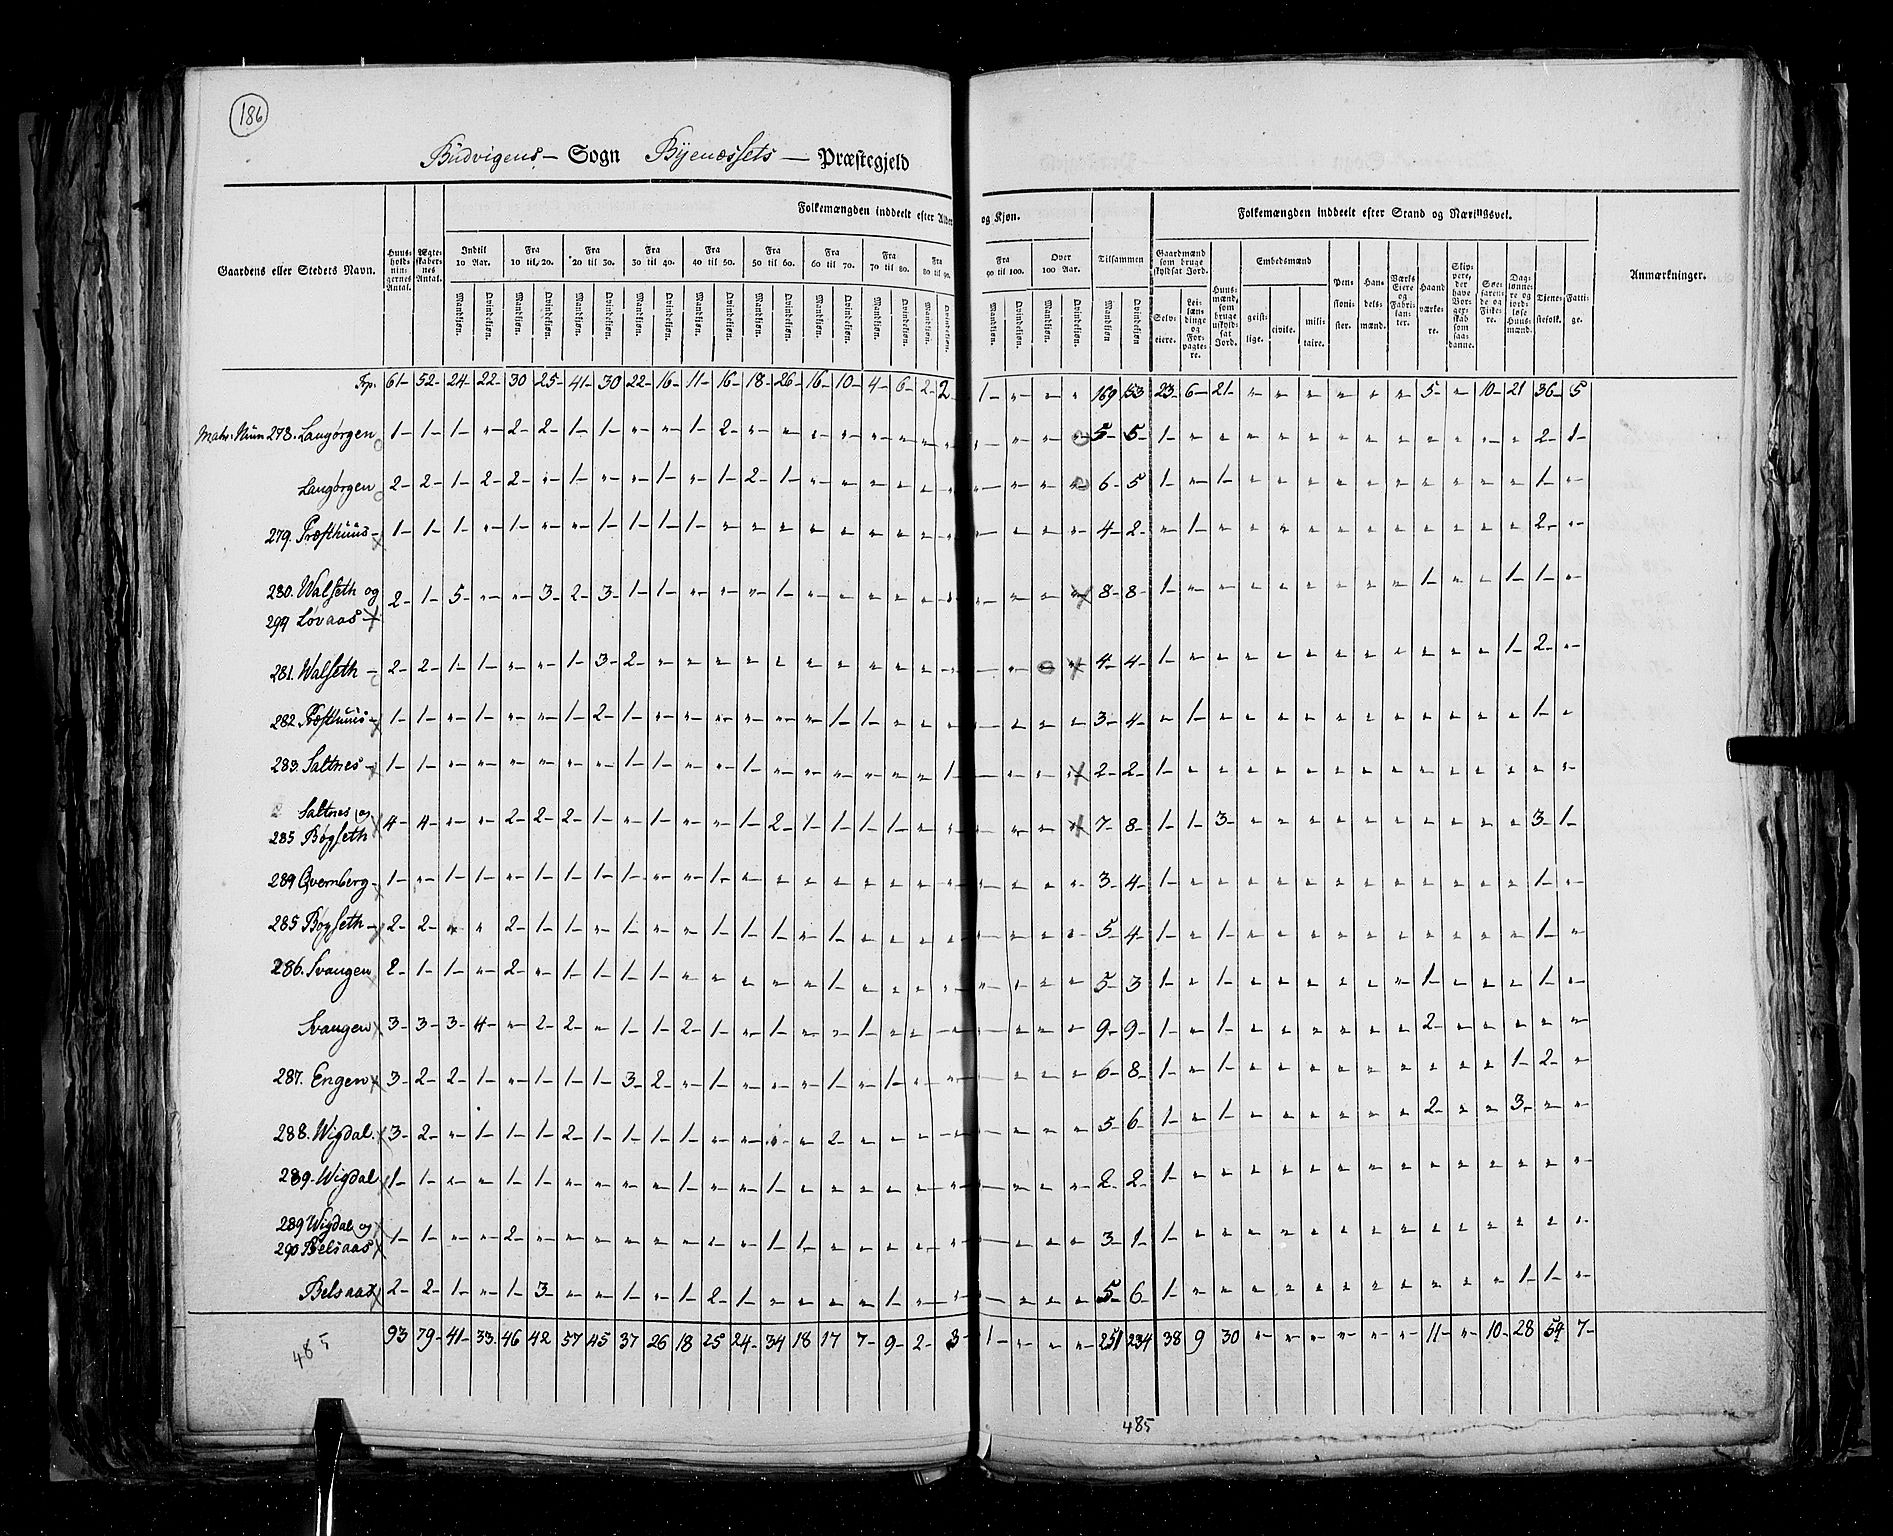 186
Budvigens – Sogn Byenæssets – Præstegjeld
Folkemængden inddeelt efter Alder og Kjøn.
Folkemængden inddeelt efter Stand og Næringsvei.
Gaardens eller Steders Navn.
Huus-holdningernes Antal.
Ægteskabernes Antal.
Indtil 10 Aar.
Fra 10 til 20.
Fra 20 til 30.
Fra 30 til 40.
Fra 40 til 50.
Fra 50 til 60.
Fra 60 til 70.
Fra 70 til 80.
Fra 80 til 90.
Fra 90 til 100.
Over 100 Aar.
Tilsammen
Mandkjøn. Qvindekjøn.
Gaardmænd som bruge skyldsat Jord.
Selveiere.
Leilændinge og Forpagtere.
Huusmænd, som bruge uskyldsat Jord.
Embedsmænd
geistlige. civile. militaire.
Pensionister.
Handelsmænd.
Værks Eiere og Fabrikanter.
Haandværkere.
Søefarende og Fiskere.
Tjenestefolk.
Fattige.
Anmærkninger.
Trp. 61 52 24 22 30 25 41 30 22 16 11 16 18 26 16 10 4 6 2 2 1 " " " 169 153 23 6 21 " " " " " " 5 " 10 21 36 5
Matr: Num 278. Langørgen 1 1 1 " 2 2 1 1 " " 1 2 " " " " " " " " " " " " 5 5 1 " " " " " " " " " " " " 2 1
Langørgen 2 2 1 2 2 " 1 " " 1 " 1 2 1 " " " " " " " " " " 6 5 1 " 1 " " " " " " " " " " 1 "
279. Præsthuus 1 1 1 " 1 " " 1 1 1 1 " " " " " " " " " " " " " 4 2 " 1 " " " " " " " " " " " 2 "
280. Walseth og
294 Løvaas 2 1 5 " " 3 2 3 1 1 " " " 1 " " " " " " " " " " 8 8 1 " " " " " " " " 1 " " 1 1 "
281. Walseth 2 2 1 1 " " 1 3 2 " " " " " " " " " " " " " " " 4 4 1 " " " " " " " " " " " 1 2 "
282 Præsthuus 1 1 " 1 " " 1 2 1 " " " " " " 1 1 " " " " " " " 3 4 " 1 " " " " " " " " " " " 1 "
283. Saltnes 1 1 " " " " " " 1 1 " " 1 " " " " " " 1 " " " " 2 2 1 " " " " " " " " " " " " " "
Saltnes og
285 Bøgseth 4 4 " " 2 2 2 1 " 1 " " 1 2 1 1 1 1 " " " " " " 7 8 1 1 3 " " " " " " " " " " 3 1
284 Qvernberg 1 " 1 1 " 1 1 1 1 " " 1 " " " " " " " " " " " " 3 4 1 " " " " " " " " " " " " 1 "
285 Bøgseth 2 2 " " 2 1 1 " 1 " " 1 1 1 " 1 " " " " " " " " 5 4 1 " 1 " " " " " " " " " " 1 "
286. Svangen 2 1 1 " 2 " 1 1 1 1 " " " " " 1 " " " " " " " " 5 3 1 " 1 " " " " " " 1 " " " 1 "
Svangen 3 3 3 4 " 2 2 " 1 1 2 1 " 1 " " 1 " " " " " " " 9 9 1 " 1 " " " " " " 2 " " " " "
287. Engen 3 2 2 1 " 1 1 1 3 2 " 1 " " " 1 " 1 " " " " " " 6 8 1 " 1 " " " " " " " " " 1 2 "
288. Wigdal 3 2 " 1 1 1 2 1 1 1 1 " " " " 2 " " " " " " " " 5 6 1 " 1 " " " " " " 2 " " 3 " "
289. Wigdal 1 1 " " 1 1 " " " " 1 " " 1 " " " " " " " " " " 2 2 1 " " " " " " " " " " " " " "
289 Wigdal og
290 Belsaas 1 1 " " 2 " " " " " " " " 1 1 " " " " " " " " " 3 1 1 " " " " " " " " " " " " " "
Belsaas 2 2 1 " 1 3 " " 1 " 1 2 1 " " " " 1 " " " " " " 5 6 1 " " " " " " " " " " " 1 1 "
93 79 41 33 46 42 57 45 37 26 18 25 24 34 18 17 7 9 2 3 1 " " " 251 234 38 9 30 " " " " " " 11 " 10 28 54 7
485
485